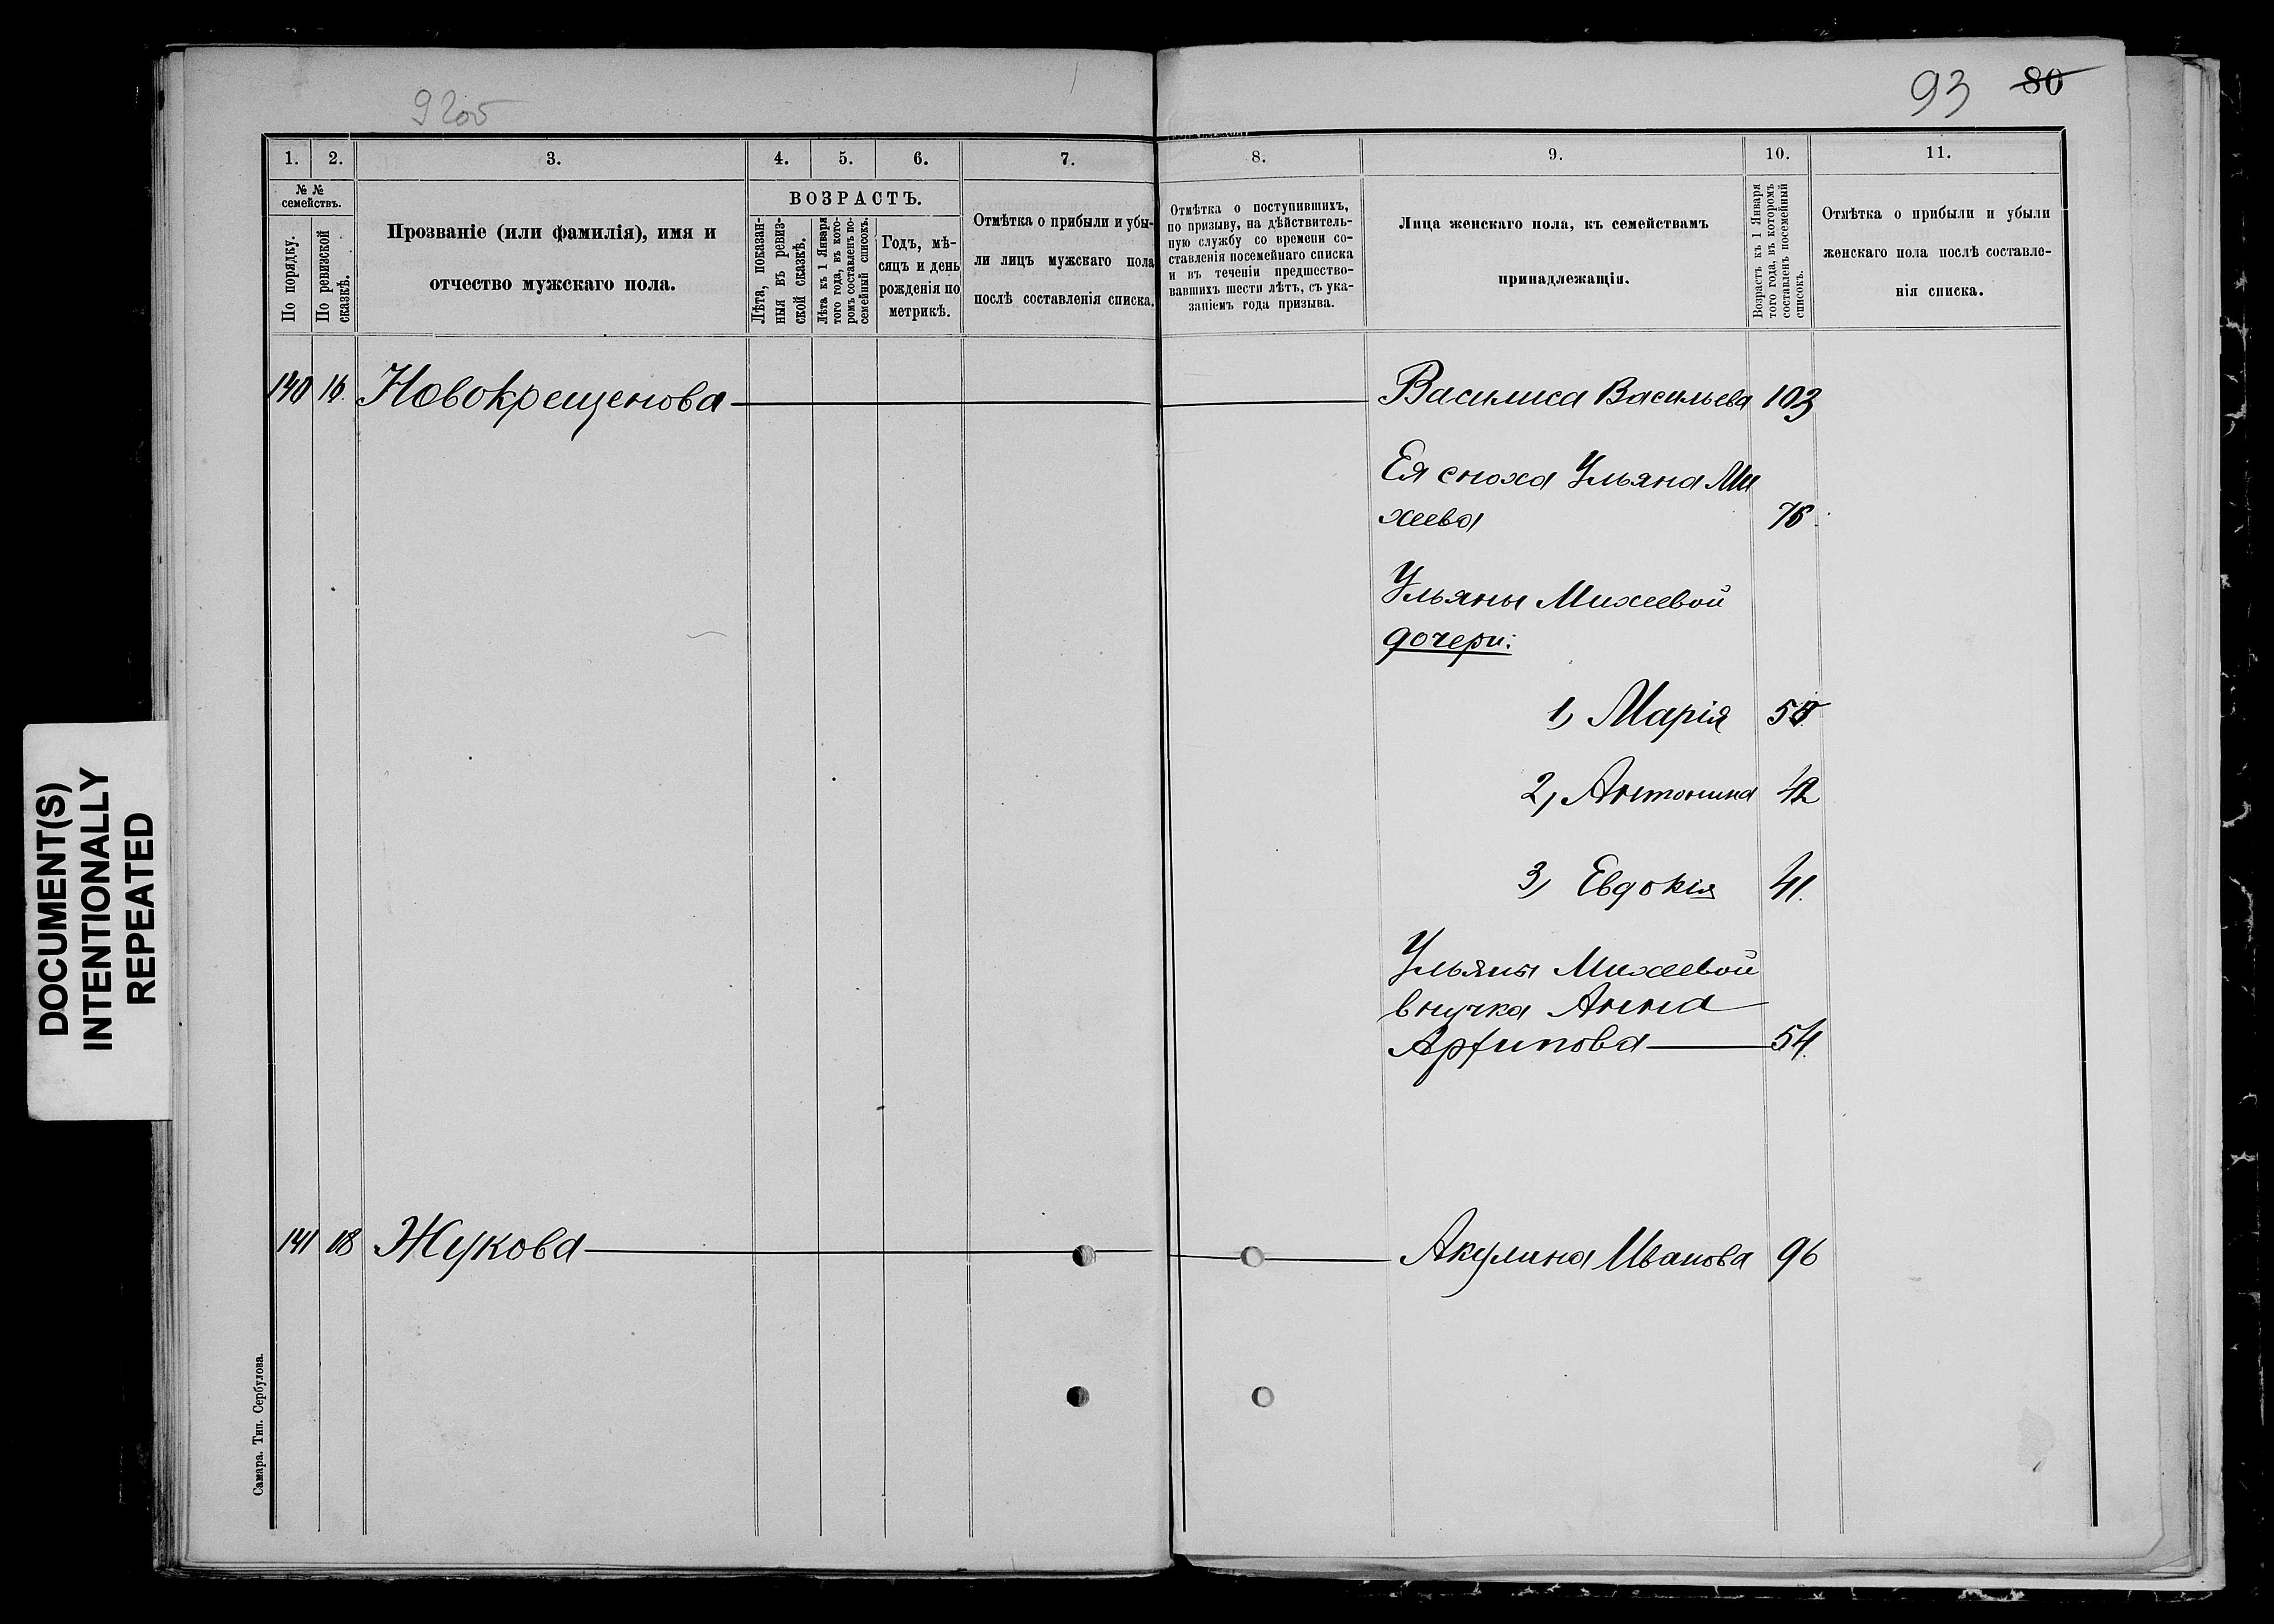 92об
93 80
1. 2. 3. 4. 5. 6. 7.
№ №
семействъ.
По порядку.
По ревизской
сказкѣ.
Прозваніе (или фамилія), имя и
отчество мужскаго пола.
ВОЗРАСТЪ.
Лѣта, показан-
ныя въ ревиз-
ской сказкѣ.
Лѣта къ 1 Января
того года, въ кото-
ромъ составленъ по-
семейный списокъ.
Годъ, мѣ-
сяцъ и день
рожденія по
метрикѣ.
Отмѣтка о прибыли и убы-
ли лицъ мужскаго пола
послѣ составленія списка.
8. 9. 10. 11.
Отмѣтка о поступившихъ,
по призыву, на дѣйствитель-
ную службу со времени со-
ставленія посемейнаго списка
и въ теченіи предшество-
вавшихъ шести лѣтъ, съ ука-
заніемъ года призыва.
Лица женскаго пола, къ семействамъ
принадлежащія.
Возрастъ къ 1 Января
того года, въ которомъ
составленъ посемейный
списокъ.
Отмѣтка о прибыли и убыли
женскаго пола послѣ составле-
нія списка.
140 16. Новокрещенова Василиса Васильева 103
Ея сноха Ульяна Ми
хеева 76
Ульяны Михеевой
дочери:
1, Марія 58
2, Антонина 42
3, Евдокія 41.
Ульяны Михеевой
внучка Анна
Архипова 54.
141 18 Жукова Акулина Иванова 96
Самара. Тип. Сербулова.
DOCUMENT(S)
INTENTIONALLY
REPEATED